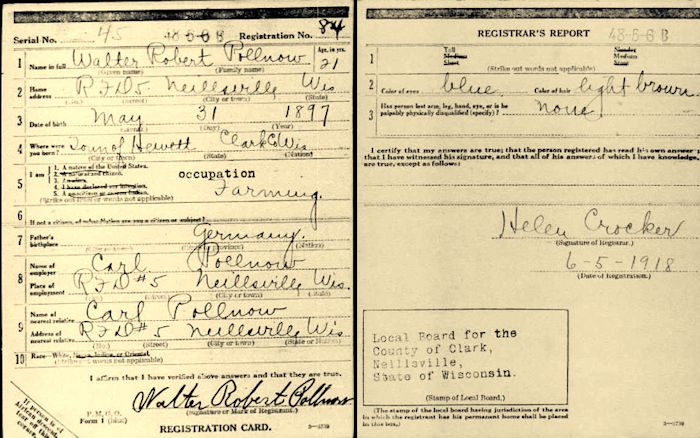 Serial No. 45 48-5-6 B Registration No. 84
1 Name in full Walter Robert Pollnow Age, in yrs. 21
(Given name) (Family name)
2 Home address R F D 5 Neillsville Wis
(No.) (Street) (City or town) (State)
3 Date of birth May 31 1897
(Month) (Day) (Year)
4 Where were you born? Town of Hewett Clark Co Wis
(City or town) (State) (Nation)
5 I am
1. A native of the United States.
2. A naturalized citizen.
3. An alien.
4. I have declared my intention.
5. A noncitizen or citizen Indian.
(Strike out lines or words not applicable)
occupation
Farming.
6 If not a citizen, of what Nation are you a citizen or subject?
7 Father's birthplace Germany.
(City or town) (State or province) (Nation)
8 Name of employer Carl Pollnow
Place of employment R F D #5 Neillsville Wis.
(No.) (Street) (City or town) (State)
9 Name of nearest relative Carl Pollnow
Address of nearest relative R F D #5 Neillsville Wis
(No.) (Street) (City or town) (State or Nation)
10 Race—White, Negro, Indian, or Oriental.
(Strike out words not applicable)
I affirm that I have verified above answers and that they are true.
Walter Robert Pollnow
P. M. G. O.
Form 1 (blue)
(Signature or Mark of Registrant.)
REGISTRATION CARD.
If person is of African descent, tear off this corner.
3—4739
REGISTRAR'S REPORT 48-5-6 B
1 Tall Slender
Medium Medium
Short Stout
(Strike out words not applicable)
2 Color of eyes blue Color of hair light brown
3 Has person lost arm, leg, hand, eye, or is he palpably physically disqualified (specify)? none
I certify that my answers are true; that the person registered has read his own answers;
that I have witnessed his signature, and that all of his answers of which I have knowledge,
are true, except as follows:
Helen Crocker
(Signature of Registrar.)
6-5-1918
(Date of Registration.)
Local Board for the
County of Clark,
Neillsville,
State of Wisconsin.
(Stamp of Local Board.)
(The stamp of the local board having jurisdiction of the area
in which the registrant has his permanent home shall be placed
in this box.)
3—4739